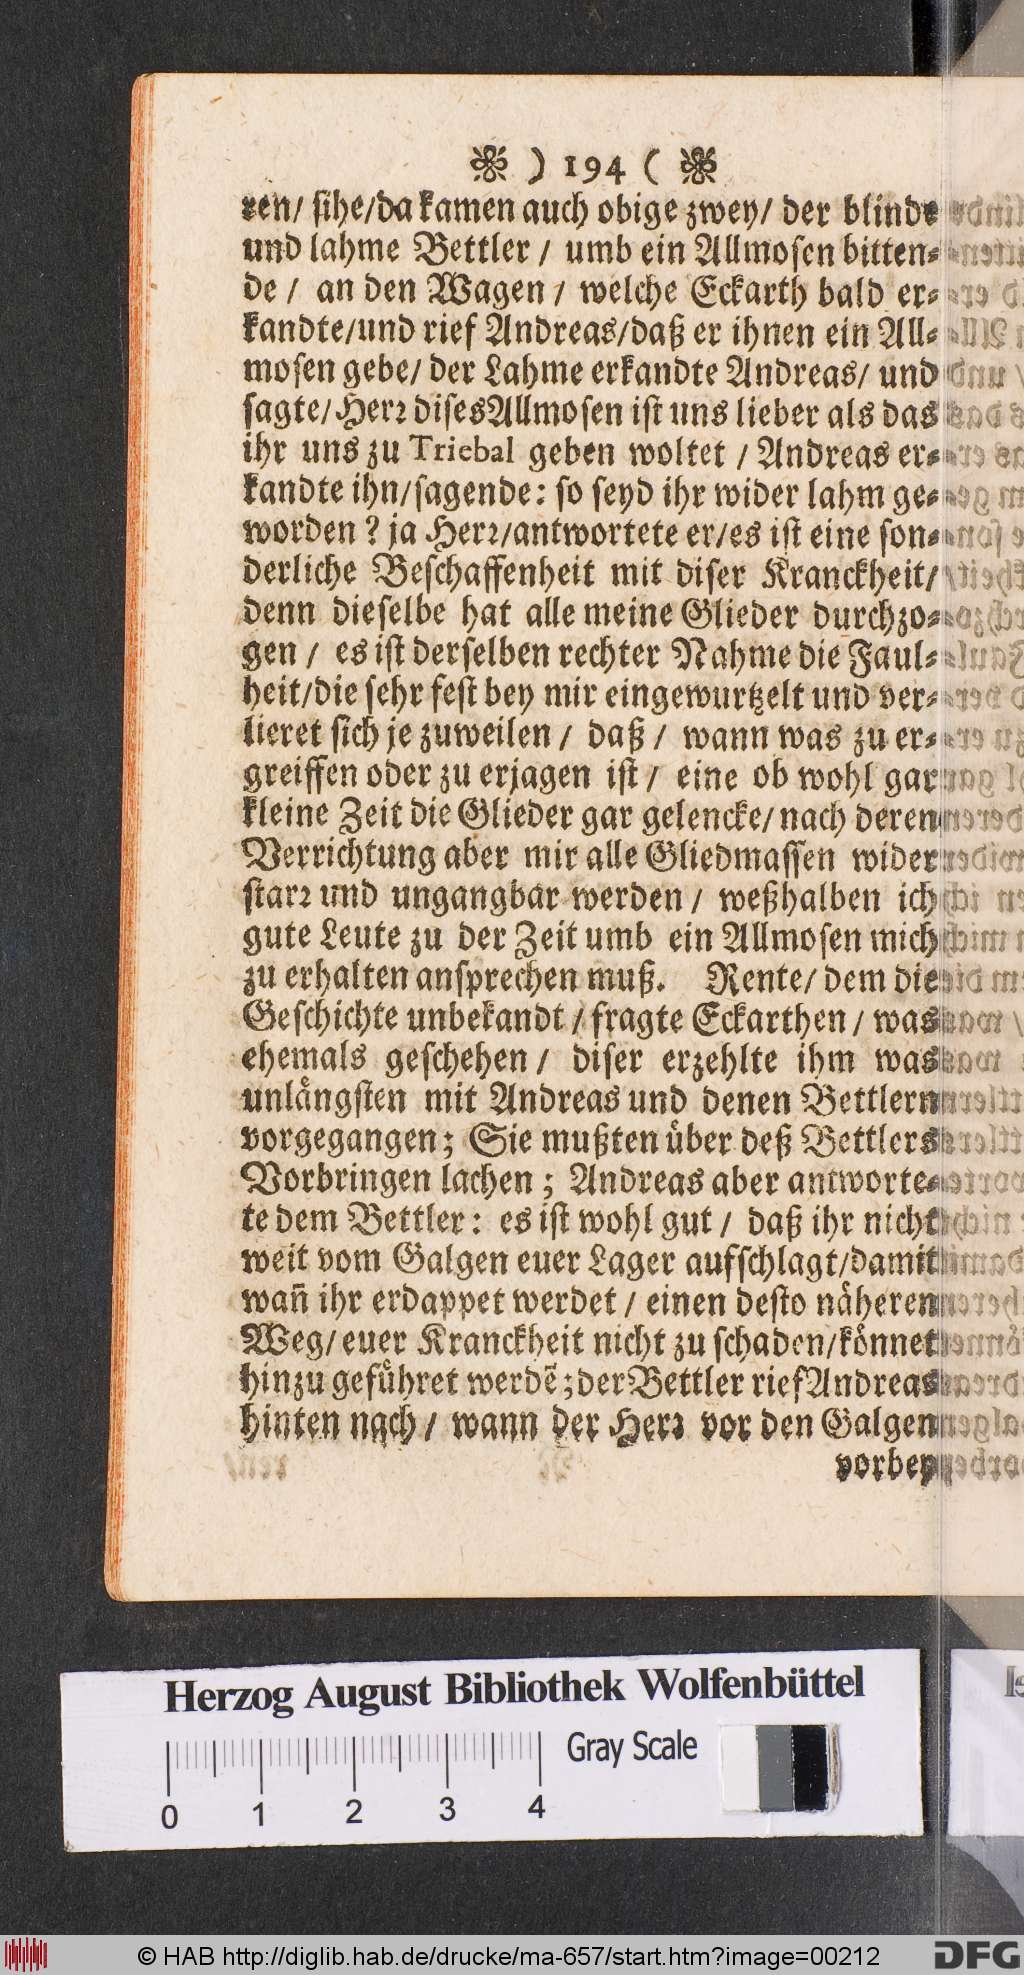 ❀ ) 194 ( ❀
ren/ sihe/da kamen auch obige zwey/ der blinde
und lahme Bettler / umb ein Allmosen bitten-
de / an den Wagen / welche Eckarth bald er-
kandte/und rief Andreas/daß er ihnen ein All-
mosen gebe/ der Lahme erkandte Andreas/ und
sagte/ Herꝛ disesAllmosen ist uns lieber als das
ihr uns zu Triebal geben woltet / Andreas er-
kandte ihn/sagende: so seyd ihr wider lahm ge-
worden ? ja Herꝛ/antwortete er/es ist eine son-
derliche Beschaffenheit mit diser Kranckheit/
denn dieselbe hat alle meine Glieder durchzo-
gen / es ist derselben rechter Nahme die Faul-
heit/die sehr fest bey mir eingewurtzelt und ver-
lieret sich je zuweilen / daß / wann was zu er-
greiffen oder zu erjagen ist / eine ob wohl gar
kleine Zeit die Glieder gar gelencke/ nach deren
Verrichtung aber mir alle Gliedmassen wider
starꝛ und ungangbar werden / weßhalben ich
gute Leute zu der Zeit umb ein Allmosen mich
zu erhalten ansprechen muß. Rente/ dem die
Geschichte unbekandt / fragte Eckarthen / was
ehemals geschehen / diser erzehlte ihm was
unlängsten mit Andreas und denen Bettlern
vorgegangen; Sie mußten über deß Bettlers
Vorbringen lachen ; Andreas aber antworte-
te dem Bettler: es ist wohl gut / daß ihr nicht
weit vom Galgen euer Lager aufschlagt/damit
wañ ihr erdappet werdet / einen desto näheren
Weg/ euer Kranckheit nicht zu schaden/könnet
hinzu geführet werdẽ;derBettler riefAndreas
hinten nach / wann der Herꝛ vor den Galgen
vorbey
Herzog August Bibliothek Wolfenbüttel
Gray Scale
0 1 2 3 4
© HAB http://diglib.hab.de/drucke/ma-657/start.htm?image=00212
DFG